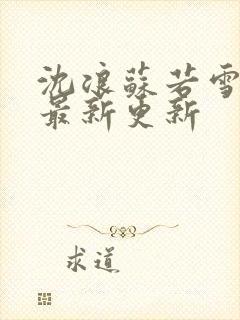 沈浪蘇若雪
最新更新
求道